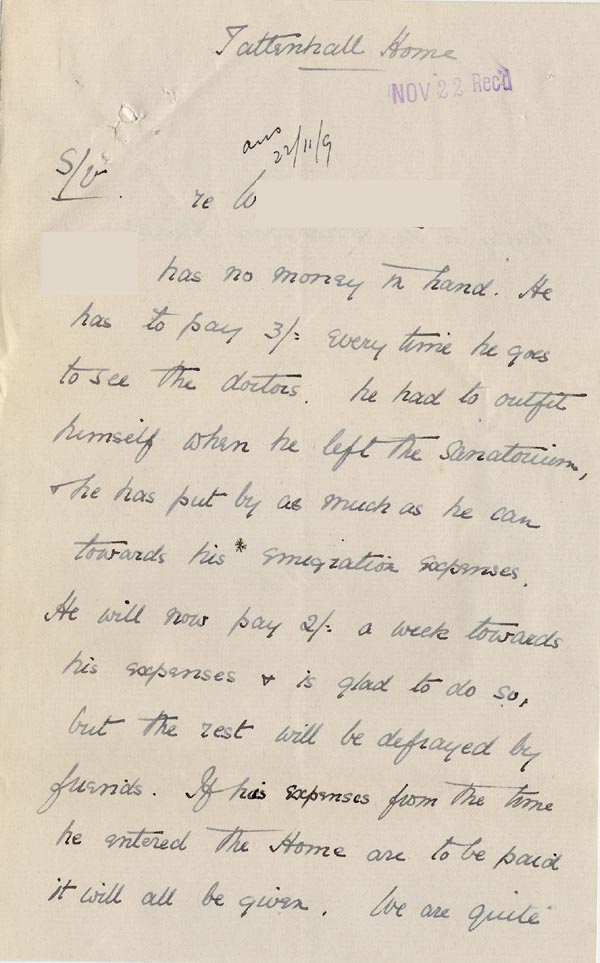 Tattenhall Home
NOV 22 Rec'd
ans
22/11/9
S/V.
re W
has no money in hand. He
has to pay 3/- every time he goes
to see the doctors. he had to outfit
himself when he left the Sanatorium,
& he has put by as much as he can
towards his * emigration expenses.
He will now pay 2/- a week towards
his expenses & is glad to do so,
but the rest will be defrayed by
friends. If his expenses from the time
he entered the Home are to be paid
it will all be given. We are quite